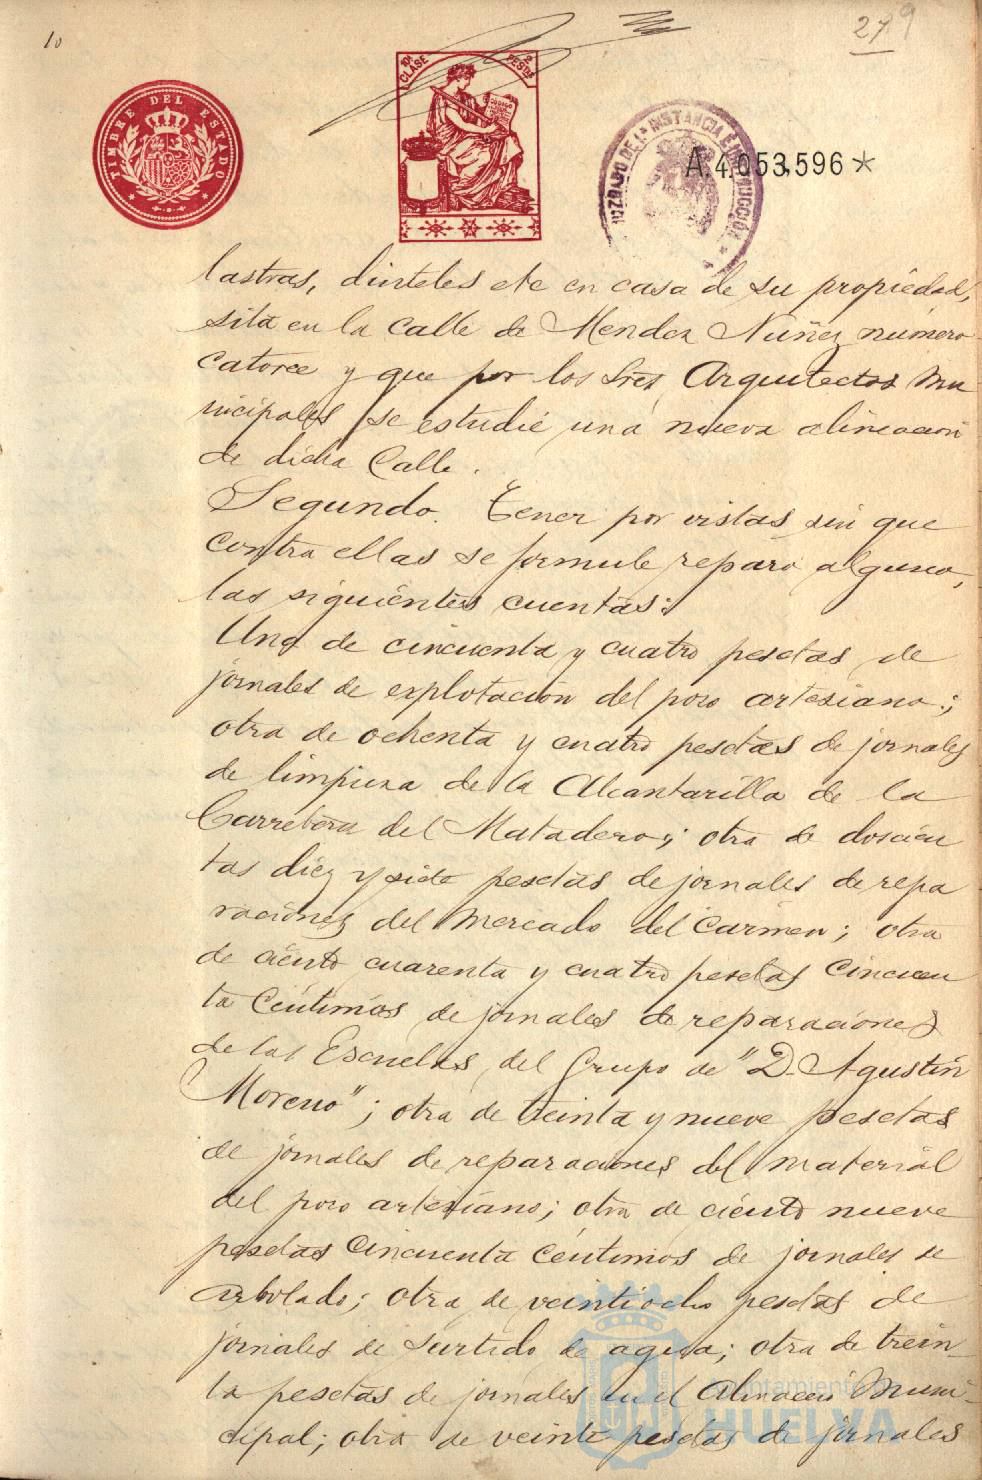 10
279
TIMBRE DEL ESTADO
10ª CLASE 2 PESTAS
JUZGADO DE 1ª INSTANCIA É INSTRUCCIÓN
A.4.053,596*
lastras, dinteles etc en casa de su propiedad,
sita en la calle de Mendez Nuñez número
catorce y que por los Sres Arquitectos Mu
nicipales se estudie una nueva alineacion
de dicha Calle.
Segundo. Tener por vistas sin que
contra ellas se formule reparo alguno,
las siguientes cuentas:
Una de cincuenta y cuatro pesetas de
jornales de explotacion del pozo artesiano;
otra de ochenta y cuatro pesetas de jornales
de limpieza de la Alcantarilla de la
Carretera del Matadero; otra de doscien
tas diez y siete pesetas de jornales de repa
raciones del Mercado del Carmen; otra
de ciento cuarenta y cuatro pesetas cincuen
ta céntimos de jornales de reparaciones
de las Escuelas del Grupo de "D. Agustin
Moreno"; otra de treinta y nueve pesetas
de jornales de reparaciones del material
del pozo artesiano; otra de ciento nueve
pesetas cincuenta céntimos de jornales de
arbolado; otra de veintiocho pesetas de
jornales de surtido de agua; otra de trein-
ta pesetas de jornales en el Almacen Muni
cipal; otra de veinte pesetas de jornales
Ayuntamiento de
HUELVA